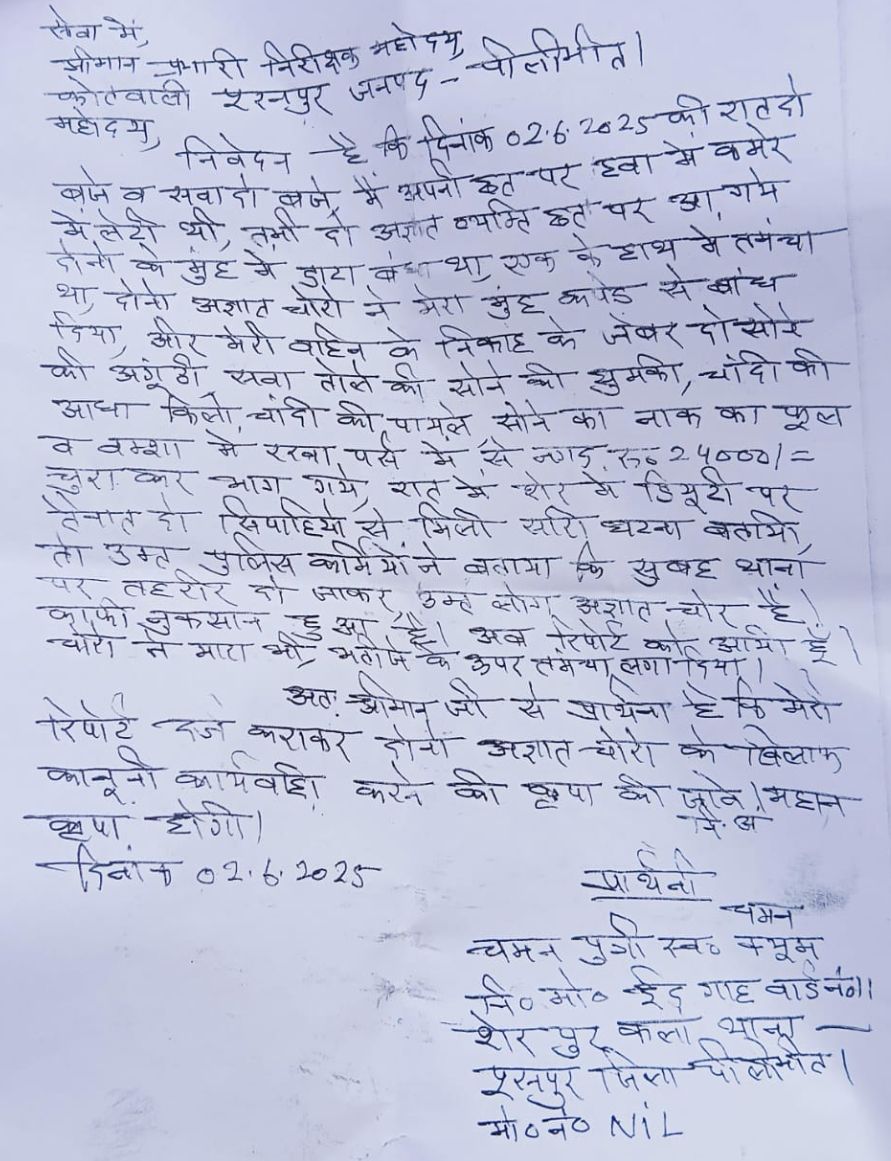 सेवा में,
श्रीमान प्रभारी निरीक्षक महोदय,
कोतवाली पूरनपुर जनपद - पीलीभीत।
महोदय,
निवेदन है कि दिनांक 02.6.2025 की रात दो
बजे व सवा दो बजे, मैं अपनी छत पर हवा में कमरे
में लेटी थी, तभी दो अज्ञात व्यक्ति छत पर आ गये
दोनो के मुंह में डाटा बंधा था, एक के हाथ मे तमंचा
था, दोनो अज्ञात चोरो ने मेरा मुंह कपडे से बांध
दिया, और मेरी बहिन के निकाह के जेबर दो सोने
की अंगूठी, सवा तोले की सोने की झुमकी, चांदी की
आधा किलो, चांदी की पायले, सोने का नाक का फूल
व बक्शा मे रखा पर्स में से नगद रु० 24000/=
चुरा कर भाग गये, रात में शेर मे डियूटी पर
तैनात दो सिपाहियो से मिली सारी घटना बतायी,
तो उक्त पुलिस कर्मियों ने बताया कि सुबह थाना
पर तहरीर दी जाकर, उक्त लोग अज्ञात चोर है।
काफी नुकसान हुआ है। अब रिपोर्ट को आयी हूँ।
चोरो ने मारा भी, भतीजे के ऊपर तमंचा लगा दिया।
अतः श्रीमान जी से प्रार्थना है कि मेरी
रिपोर्ट दर्ज कराकर दोनो अज्ञात चोरो के खिलाफ
कानूनी कार्यवाही करने की कृपा की जावे। महान
कृपा होगी।
नि. अं
दिनांक 02.6.2025
प्रार्थनी
चमन
चमन पुत्री स्व० कयूम
नि० मो० ईद गाह वार्ड नं०1
शेर पुर कला थाना -
पूरनपुर जिला पीलीभीत।
मो० नं० NiL